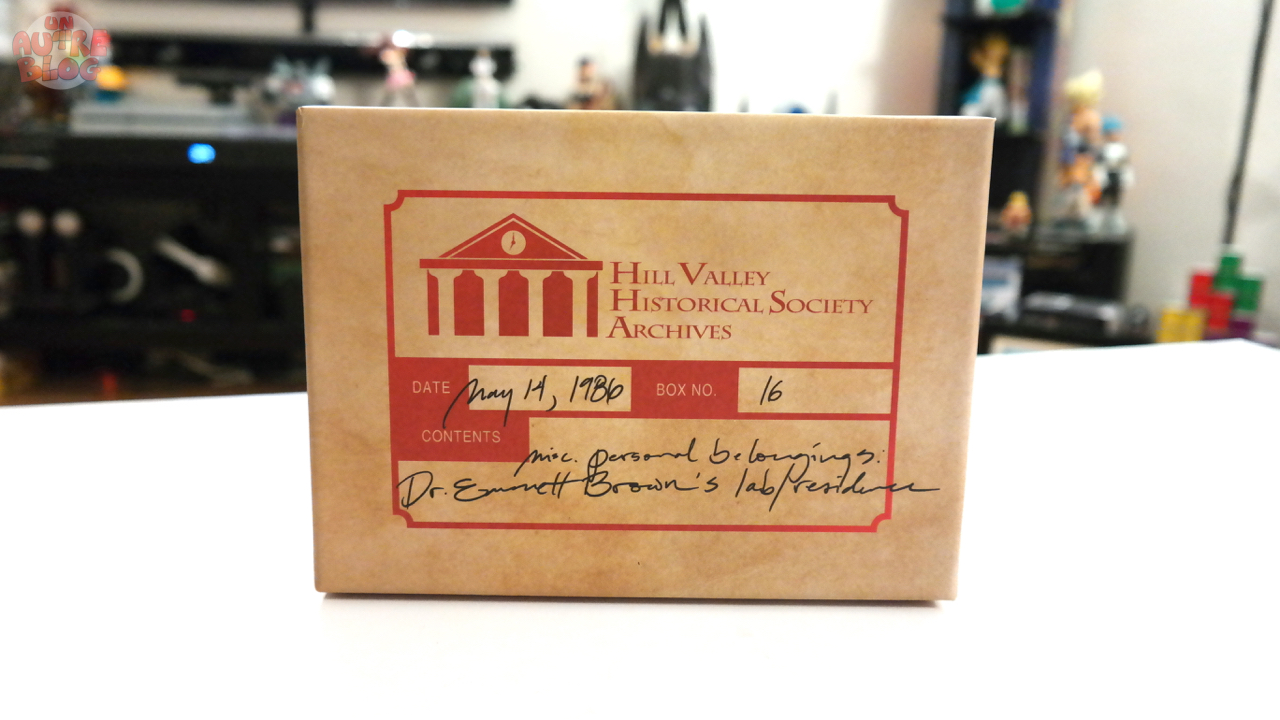 UN
AUTRE
BLOG
HILL VALLEY
HISTORICAL SOCIETY
ARCHIVES
DATE May 14, 1986 BOX NO. 16
CONTENTS
misc. personal belongings:
Dr. Emmett Brown's lab/residence